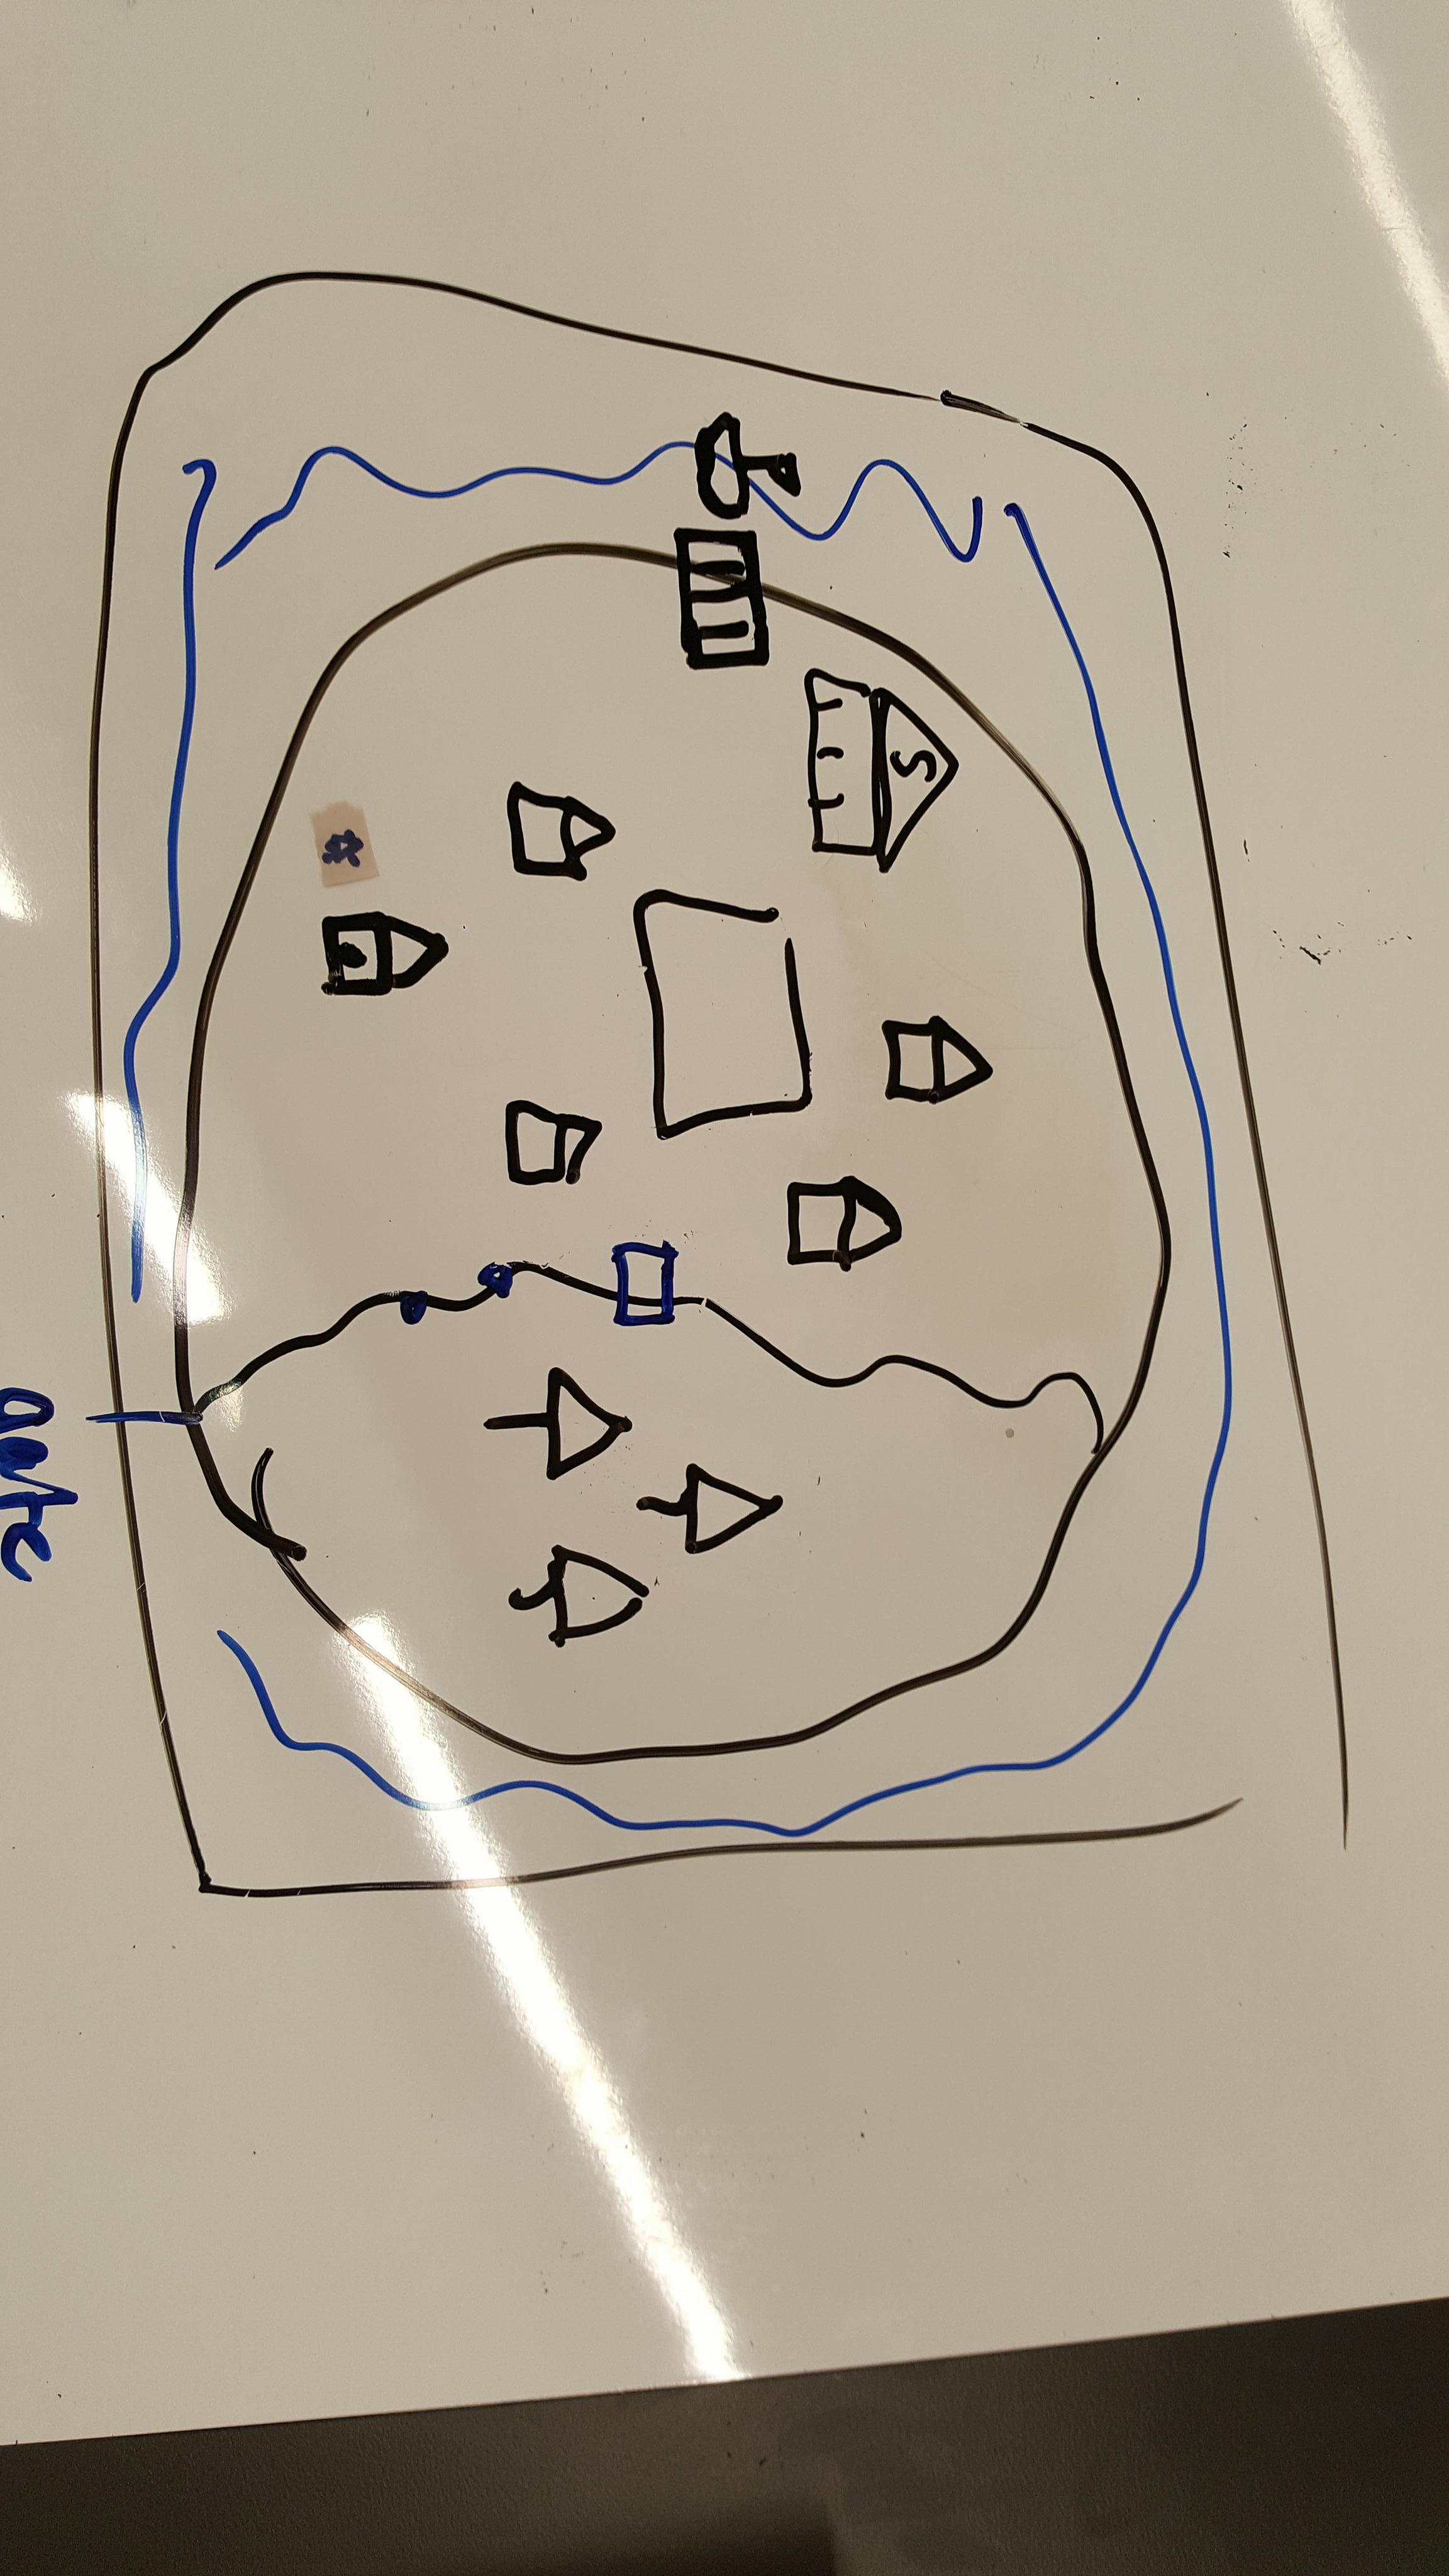 S
gate